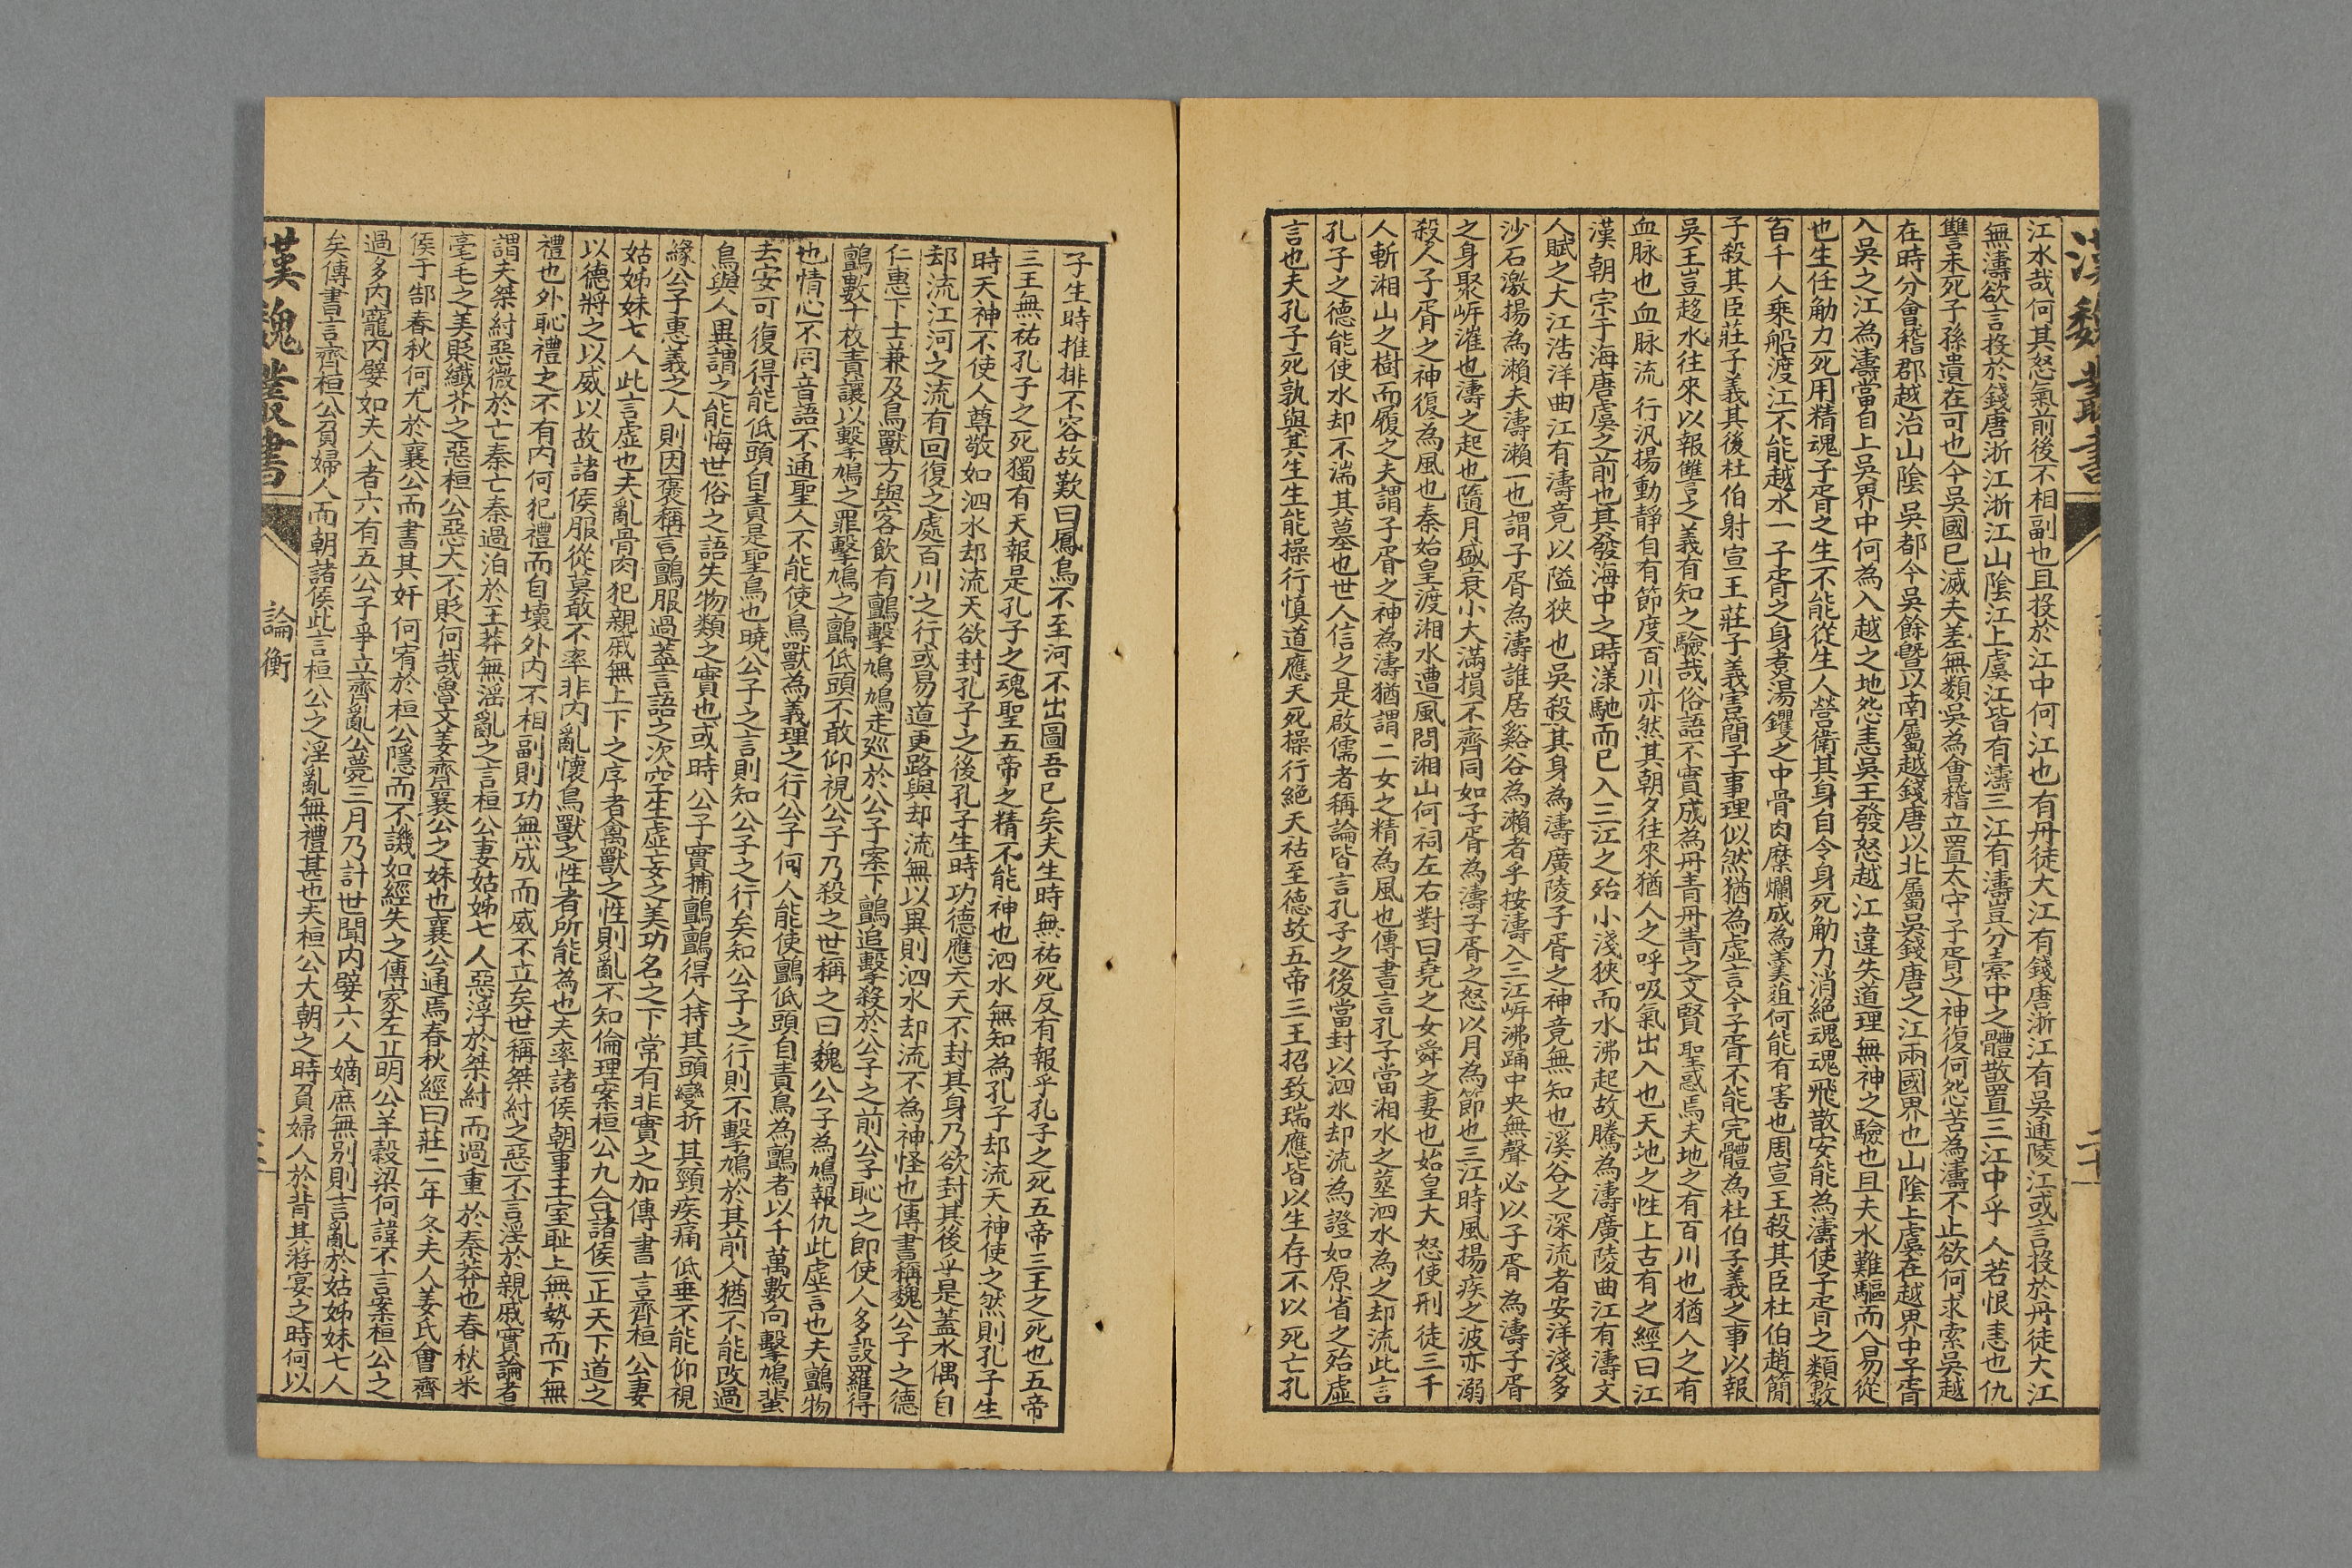 漢魏叢書
江水哉何其怒氣前後不相副也且投於江中何江也有丹徒大江有錢唐浙江有吳通陵江或言投於丹徒大江
無濤欲言投於錢唐浙江浙江山陰江上虞江皆有濤三江有濤豈分橐中之體散置三江中乎人若恨恚也仇
讐未死子孫遺在可也今吳國已滅夫差無類吳為會稽立置太守子胥之神復何怨苦為濤不止欲何求索吳越
在時分會稽郡越治山陰吳都今吳餘暨以南屬越錢唐以北屬吳錢唐之江兩國界也山陰上虞在越界中子胥
入吳之江為濤當自上吳界中何為入越之地怨恚吳王發怒越江違失道理無神之驗也且夫水難驅而人易從
也生任觔力死用精魂子胥之生不能從生人營衛其身自令身死觔力消絕魂魂飛散安能為濤使子胥之類數
百千人乘船渡江不能越水一子胥之身煮湯鑊之中骨肉糜爛成為羹葅何能有害也周宣王殺其臣杜伯趙簡
子殺其臣莊子義其後杜伯射宣王莊子義害簡子事理似然猶為虛言今子胥不能完體為杜伯子義之事以報
吳王豈趍水往來以報讐之義有知之驗哉俗語不實成為丹青丹青之文賢聖惑焉夫地之有百川也猶人之有
血脉也血脉流行汎揚動靜自有節度百川亦然其朝夕往來猶人之呼吸氣出入也天地之性上古有之經曰江
漢朝宗于海唐虞之前也其發海中之時漾馳而已入三江之殆小淺狹而水沸起故騰為濤廣陵曲江有濤文
人賦之大江浩洋曲江有濤竟以隘狹也吳殺其身為濤廣陵子胥之神竟無知也溪谷之深流者安洋淺多
沙石激揚為瀨夫濤瀨一也謂子胥為濤誰居谿谷為瀨者乎按濤入三江岸沸踊中央無聲必以子胥為濤子胥
之身聚岸漼也濤之起也隨月盛衰小大滿損不齊同如子胥為濤子胥之怒以月為節也三江時風揚疾之波亦溺
殺人子胥之神復為風也秦始皇渡湘水遭風問湘山何祠左右對曰堯之女舜之妻也始皇大怒使刑徒三千
人斬湘山之樹而履之夫謂子胥之神為濤猶謂二女之精為風也傳書言孔子當湘水之塟泗水為之却流此言
孔子之德能使水却不湍其墓也世人信之是故儒者稱論皆言孔子之後當封以泗水却流為證如原省之殆虛
言也夫孔子死孰與其生生能操行慎道應天死操行絕天祐至德故五帝三王招致瑞應皆以生存不以死亡孔
子生時推排不容故歎曰鳳鳥不至河不出圖吾已矣夫生時無祐死反有報乎孔子之死五帝三王之死也五帝
三王無祐孔子之死獨有天報是孔子之魂聖五帝之精不能神也泗水無知為孔子却流天神使之然則孔子生
時天神不使人尊敬如泗水却流天欲封孔子之後孔子生時功德應天天不封其身乃欲封其後乎是蓋水偶自
却流江河之流有回復之處百川之行或易道更路與却流無以異則泗水却流不為神怪也傳書稱魏公子之德
仁惠下士兼及鳥獸方與客飲有鸇擊鳩鳩走廵於公子案下鸇追擊殺於公子之前公子恥之即使人多設羅得
鸇數十枚責讓以擊鳩之罪擊鳩之鸇低頭不敢仰視公子乃殺之世稱之曰魏公子為鳩報仇此虛言也夫鸇物
也情心不同音語不通聖人不能使鳥獸為義理之行公子何人能使鸇低頭自責鳥為鸇者以千萬數向擊鳩蜚
去安可復得能低頭自責是聖鳥也曉公子之言則知公子之行矣知公子之行則不擊鳩於其前人猶不能改過
鳥與人異謂之能悔世俗之語失物類之實也或時公子實捕鸇鸇得人持其頭變折其頸疾痛低垂不能仰視
緣公子惠義之人則因褒稱言鸇服過蓋言語之次空生虛妄之美功名之下常有非實之加傳書言齊桓公妻
姑姊妹七人此言虛也夫亂骨肉犯親戚無上下之序者禽獸之性則亂不知倫理案桓公九合諸侯一正天下道之
以德將之以威以故諸侯服從莫敢不率非內亂懷鳥獸之性者所能為也夫率諸侯朝事王室耻上無勢而下無
禮也外恥禮之不有內何犯禮而自壞外內不相副則功無成而威不立矣世稱桀紂之惡不言淫於親戚實論者
謂夫桀紂惡微於亡秦亡秦過泊於王莽無淫亂之言桓公妻姑姊七人惡浮於桀紂而過重於秦莽也春秋采
毫毛之美貶纖芥之惡桓公惡大不貶何哉魯文姜齊襄公之妹也襄公通焉春秋經曰莊二年冬夫人姜氏會齊
侯于郜春秋何尤於襄公而書其奸何宥於桓公隱而不譏如經失之傳家左丘明公羊穀梁何諱不言案桓公之
過多內寵內嬖如夫人者六有五公子爭立齊亂公薨三月乃訃世聞內嬖六人嫡庶無別則言亂於姑姊妹七人
矣傳書言齊桓公負婦人而朝諸侯此言桓公之淫亂無禮甚也夫桓公大朝之時負婦人於背其游宴之時何以
漢魏叢書
論衡